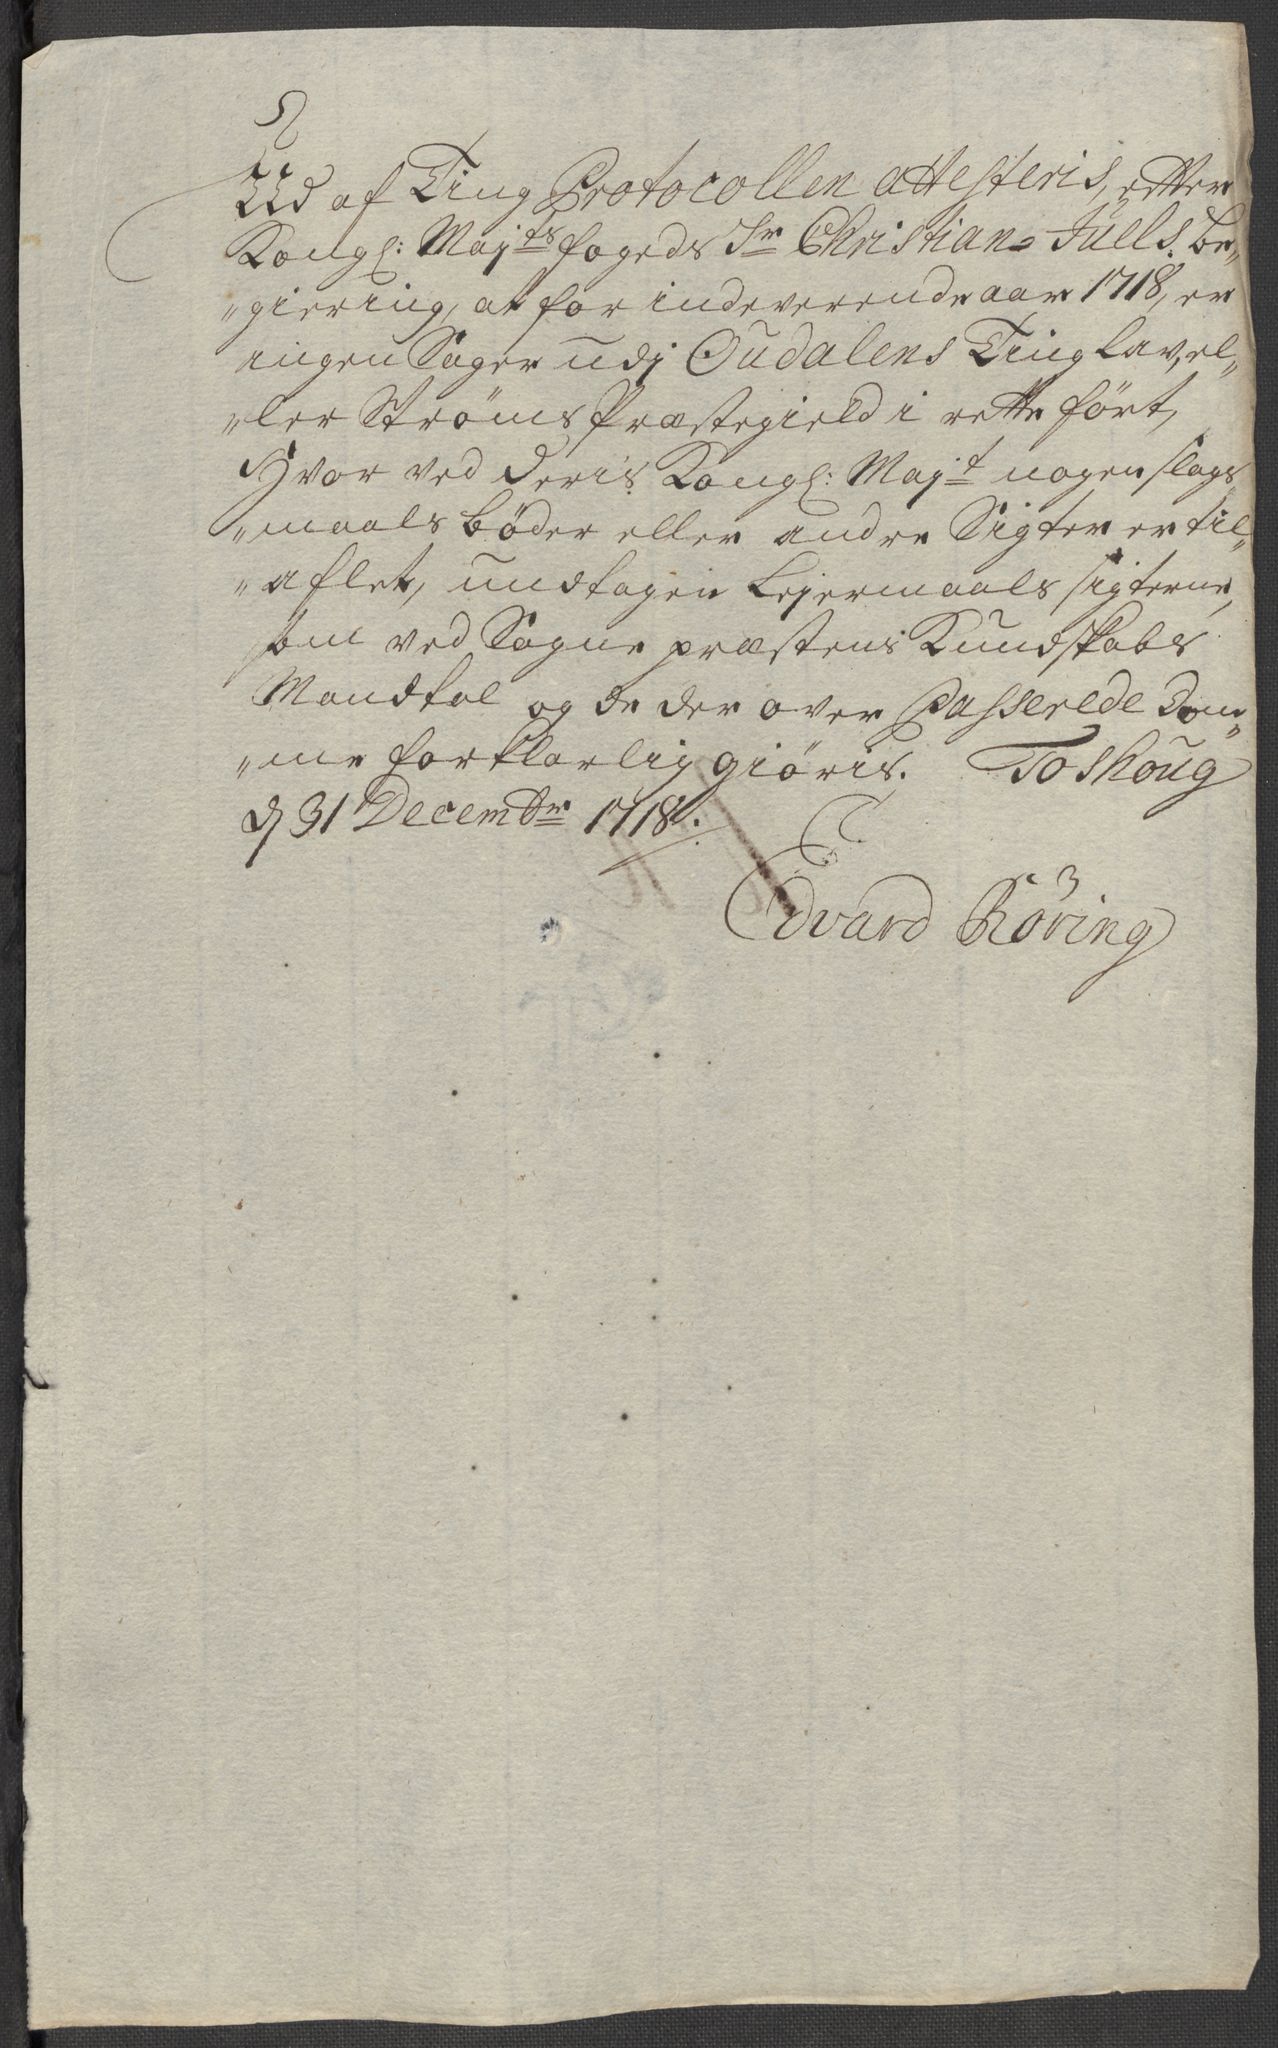 Ud af Ting Protocollen attesteris, etter
Kongl: Maj:ts fogeds Sr Christian Juells be„
„giering, at for indeverende aar 1718, er
ingen Sager udj Oudalens Tinglav, el„
„ler Ströms Præstegield i rette fört,
Hvor ved deris Kongl: Maj:t nogen slags
„maals böder eller andre Sigter er til„
„aflet, undtagen Lejermaals sigterne,
som ved Sogne præstens Kundskabs
Mandtal og de der over Passerede Dom„
„me forklarlig giöris. Toshoug
d 31 Decembr 1718.
Edvard Röring